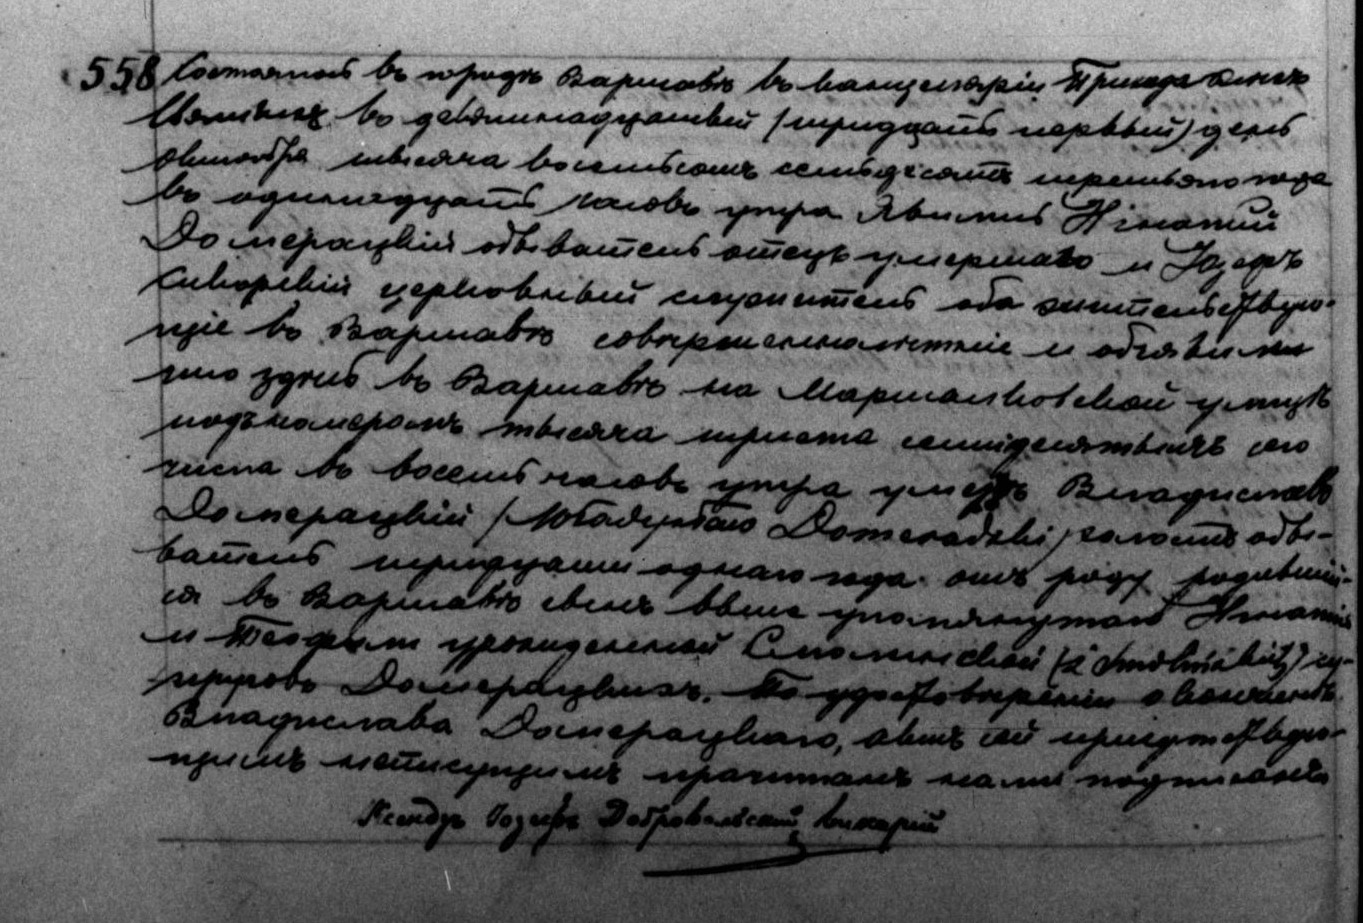 558 Состоялось въ городѣ Варшавѣ въ канцеляріи Прихода Всѣхъ
Святыхъ во девятнадцатый /тридцать первый/ день
октября тысяча восемьсотъ семьдесятъ третьяго года
въ одинадцать часовъ утра Явились Игнатій
Домерацкій обыватель отецъ умершаго и Іозефъ
Сикорскій церковный служитель оба жительствую-
щіе въ Варшавѣ совершеннолѣтніе и объявили
что здѣсь въ Варшавѣ на Маршалковской улицѣ
подъ номеромъ тысяча триста семидесятымъ сего
числа въ восемь часовъ утра умеръ Владиславъ
Домерацкій /Władysław Domeradzki/ холостъ обы-
ватель тридцати однаго года отъ роду родивший-
ся въ Варшавѣ сынъ выше упомянутаго Игнатія
и Теофили урожденной Смолинской (z Smolińskich) су-
пруговъ Домерацкихъ. По удостовѣреніи о кончинѣ
Владислава Домерацкаго, актъ сей присутствую-
щимъ неписущимъ прочитанъ нами подписанъ
Ксендзъ Іозефъ Добровольский викарій